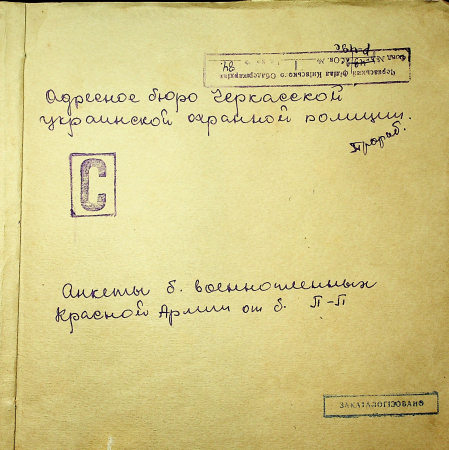 Черкаський філіал Київського Облдержархіва
Фонд №
Р-49с
Оп. № 1
34.
Адресное бюро Черкасской
украинской охранной полиции.
Прораб.
С
Анкеты б. военнопленных
Красной Армии от б. П-П
ЗАКАТАЛОГІЗОВАНО